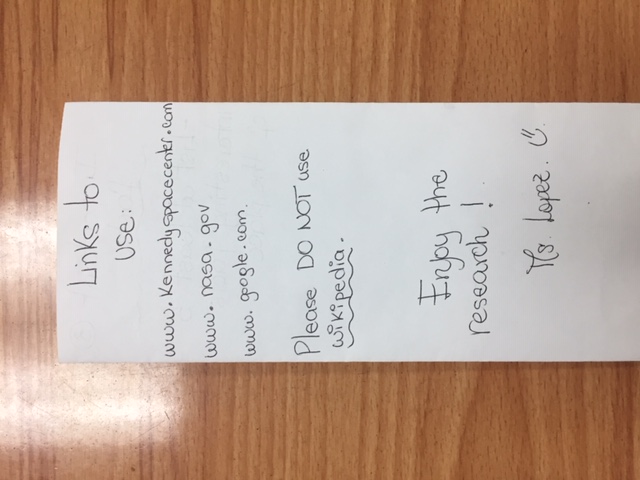 Links to
use:
www.Kennedyspacecenter.com
www.nasa.gov
www.google.com.
Please DO NOT use
wikipedia.
Enjoy the
research!
Ms. Lopez. ☺